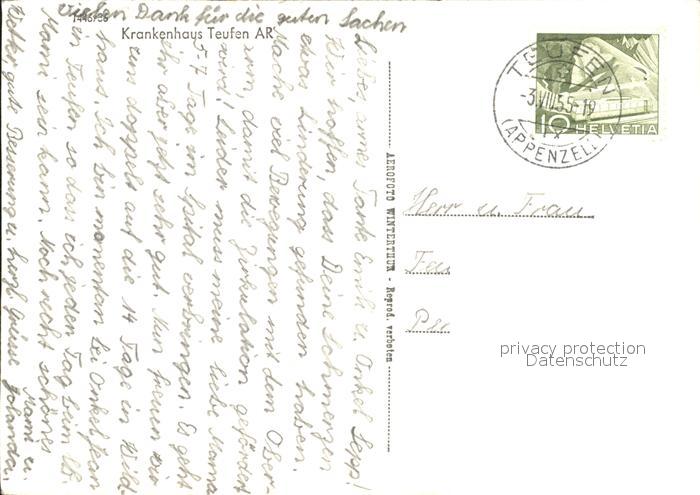 vielen Dank für die guten Sachen
Krankenhaus Teufen AR
Liebe, arme Tante Emili u. Onkel Sepp!
Wir hoffen, dass Deine Schmerzen
etwas Linderung gefunden haben.
Mache viel Bewegungen mit dem Ober-
arm, damit die Zirkulation gefördert
wird! Leider muss meine liebe Mama
57 Tage im Spital verbringen. Es geht
ihr aber jetzt sehr gut. Nun freuen wir
uns doppelt auf die 14 Tage in Wild-
haus. Ich bin momentan bei Onkel Jean
in Teufen so dass ich jeden Tag beim lb.
Mami sein kann. Noch recht schönes
Wetter gute Besserung u. herzl. Grüsse Mami u.
Jolanda.
AEROFOTO WINTERTHUR - Reprod. verboten
TEUFEN
-3.VIII.55-19
(APPENZELL)
10 HELVETIA
Herr u. Frau
privacy protection
Datenschutz